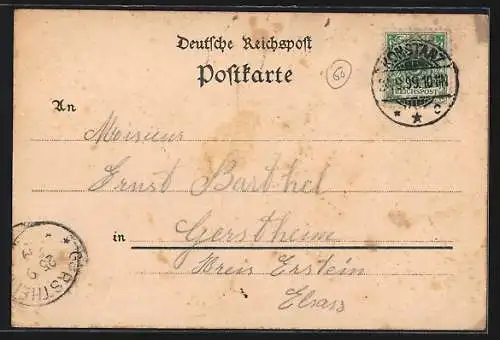 Deutsche Reichspost
Postkarte
KONSTANZ
99.10
REICHSPOST
c
60
An
Monsieur
Ernst Barthel
in Gerstheim
Kreis Erstein
Elsass
GERSTHEI